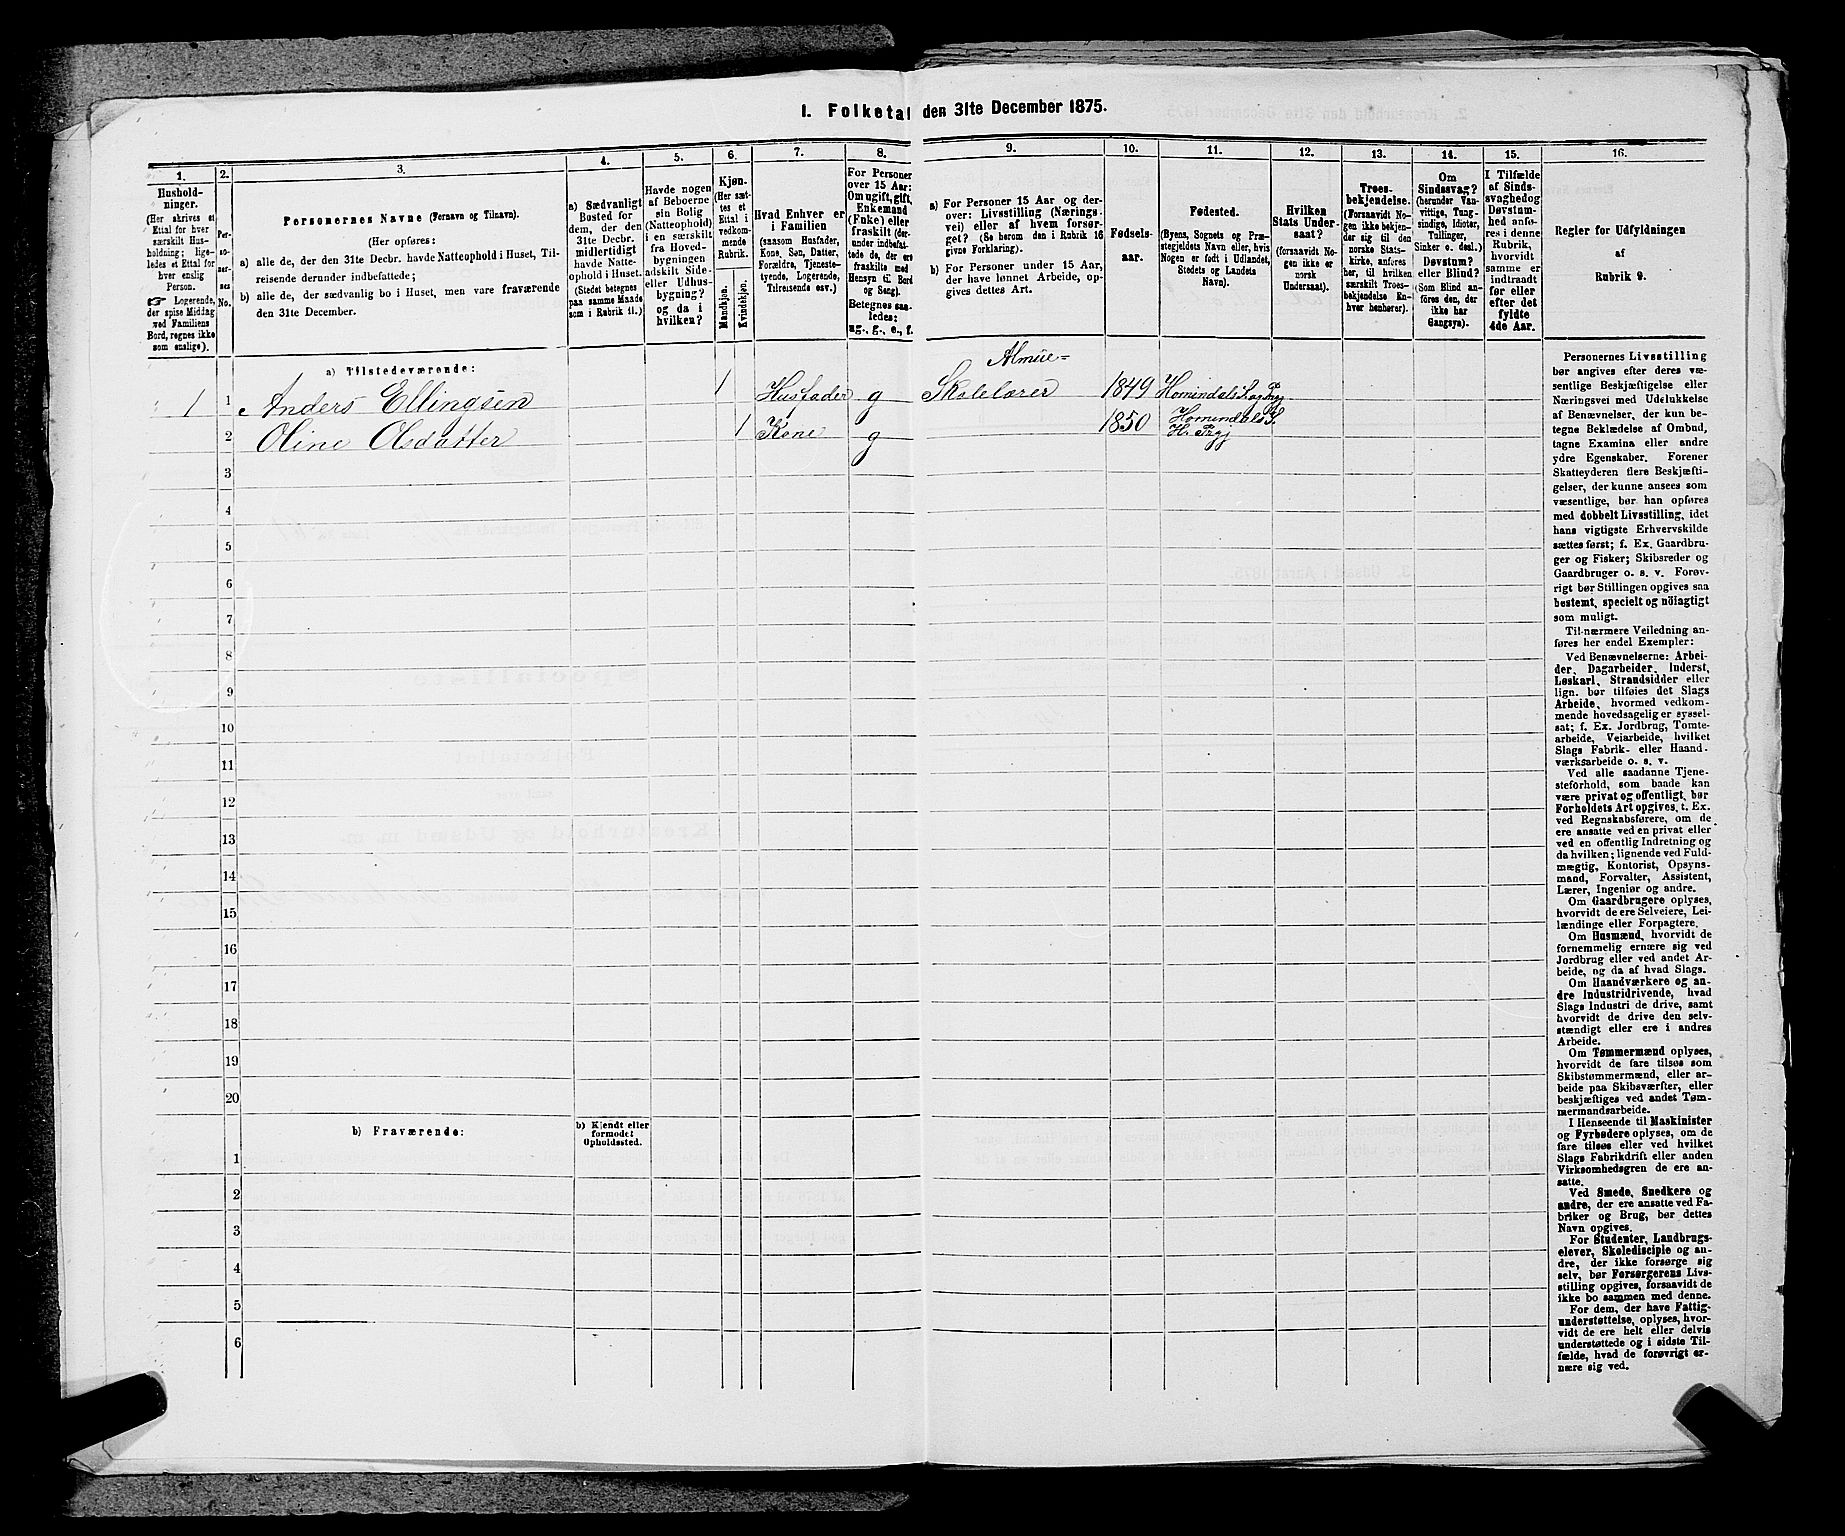 I. Folketal den 31te December 1875.
1.
Hushold-
ninger.
(Her skrives et
Ettal for hver
særskilt Hus-
holdning; lige-
ledes et Ettal for
hver enslig
Person.
☞ Logerende,
der spise Middag
ved Familiens
Bord, regnes ikke
som enslige).
2.
Per-
so-
ner-
nes
No.
3.
Personernes Navne (Fornavn og Tilnavn).
(Her opføres:
a) alle de, der den 31te Decbr. havde Natteophold i Huset, Til-
reisende derunder indbefattede;
b) alle de, der sædvanlig bo i Huset, men vare fraværende
den 31te December.
4.
a) Sædvanligt
Bosted for
dem, der den
31te Decbr.
midlertidigt
havde Natte-
ophold i Huset.
(Stedet betegnes
paa samme Maade
som i Rubrik 11.)
5.
Havde nogen
af Beboerne
sin Bolig
(Natteophold)
i en særskilt
fra Hoved-
bygningen
adskilt Side-
eller Udhus-
bygning?
og da i
hvilken?
6.
Kjøn.
(Her sæt-
tes et
Ettal i
vedkom-
mende
Rubrik.
Mandkjøn.
Kvindekjøn.
7.
Hvad Enhver er
i Familien
(saasom Husfader,
Kone, Søn, Datter,
Forældre, Tjeneste-
tyende, Logerende,
Tilreisende osv.)
8.
For Personer
over 15 Aar:
Om ugift, gift,
Enkemand
(Enke) eller
fraskilt (der-
under indbefat-
tede de, der ere
fraskilte med
Hensyn til Bord
og Seng).
Betegnes saa-
ledes:
ug., g., e., f.
9.
a) For Personer 15 Aar og der-
over: Livsstilling (Nærings-
vei) eller af hvem forsør-
get? (Se herom den i Rubrik 16
givne Forklaring).
b) For Personer under 15 Aar,
der have lønnet Arbeide, op-
gives dettes Art.
10.
Fødsels-
aar.
11.
Fødested.
(Byens, Sognets og Præ-
stegjeldets Navn eller, hvis
Nogen er født i Udlandet,
Stedets og Landets
Navn).
12.
Hvilken
Stats Under-
saat?
(forsaavidt No-
gen ikke er
norsk
Undersaat).
13.
Troes-
bekjendelse.
(Forsaavidt No-
gen ikke bekjen-
der sig til den
norske Stats-
kirke, anføres
her, til hvilken
særskilt Troes-
bekjendelse En-
hver henhører).
14.
Om
Sindssvag?
(herunder Van-
vittige, Tung-
sindige, Idioter,
Tullinger,
Sinker o. desl.)
Døvstum?
eller Blind?
(Som Blind an-
føres den, der
ikke har
Gangsyn).
15.
I Tilfælde
af Sinds-
svaghed og
Døvstum-
hed anfø-
res i denne
Rubrik,
hvorvidt
samme er
indtraadt
før eller
efter det
fyldte
4de Aar.
16.
Regler for Udfyldningen
af
Rubrik 9.
a) Tilstedeværende:
1 1 Anders Ellingsen 1 Husfader g Almue=
Skolelærer 1849
2 Oline Olsdatter 1 Kone g 1850 Hornindals S.
H. Prgj
3
4
5
6
7
8
9
10
11
12
13
14
15
16
17
18
19
20
b) Fraværende:
b) Kjendt eller
formodet
Opholdssted.
1
2
3
4
5
6
Personernes Livsstilling
bør angives efter deres væ-
sentlige Beskjæftigelse eller
Næringsvei med Udelukkelse
af Benævnelser, der kun be-
tegne Beklædelse af Ombud,
tagne Examina eller andre
ydre Egenskaber. Forener
Skatteyderen flere Beskjæfti-
gelser, der kunne ansees som
væsentlige, bør han opføres
med dobbelt Livsstilling, idet
hans vigtigste Erhvervskilde
sættes først; f. Ex. Gaardbru-
ger og Fisker; Skibsreder og
Gaardbruger o. s. v. Forøv-
rigt bør Stillingen opgives saa
bestemt, specielt og nöiagtigt
som muligt.
Til nærmere Veiledning an-
føres her endel Exempler:
Ved Benævnelserne: Arbei-
der, Dagarbeider, Inderst,
Løskarl, Strandsidder eller
lign. bør tilføies det Slags
Arbeide, hvormed vedkom-
mende hovedsagelig er syssel-
sat; f. Ex. Jordbrug, Tomte-
arbeide, Veiarbeide, hvilket
Slags Fabrik- eller Haand-
værksarbeide o. s. v.
Ved alle saadanne Tjene-
steforhold, som baade kan
være privat og offentligt, bør
Forholdets Art opgives, t. Ex.
ved Regnskabsførere, om de
ere ansatte ved en privat eller
ved en offentlig Indretning og
da hvilken; lignende ved Fuld-
mægtig, Kontorist, Opsyns-
mand, Forvalter, Assistent,
Lærer, Ingeniør og andre.
Om Gaardbrugere oplyses,
hvorvidt de ere Selveiere, Lei-
lændinge eller Forpagtere.
Om Husmænd, hvorvidt de
fornemmelig ernære sig ved
Jordbrug eller ved andet Ar-
beide, og da af hvad Slags.
Om Haandværkere og an-
dre Industridrivende, hvad
Slags Industri de drive, samt
hvorvidt de drive den selv-
stændigt eller ere i andres
Arbeide.
Om Tømmermænd oplyses,
hvorvidt de fare tilsøs som
Skibstømmermænd, eller ar-
beide paa Skibsværfter, eller
beskjæftiges ved andet Tøm-
mermandsarbeide.
I Henseende til Maskinister
og Fyrbødere oplyses, om de
fare tilsøs eller ved hvilket
Slags Fabrikdrift eller anden
Virksomhedsgren de ere an-
satte.
Ved Smede, Snedkere og
andre, der ere ansatte ved Fa-
briker og Brug, bør dettes
Navn opgives.
For Studenter, Landbrugs-
elever, Skoledisciple og an-
dre, der ikke forsørge sig
selv, bør Forsørgerens Livs-
stilling opgives, forsaavidt de
ikke bo sammen med denne.
For dem, der have Fattig-
understøttelse, oplyses, hvor-
vidt de ere helt eller delvis
understøttede og i sidste Til-
fælde, hvad de forøvrigt er-
nære sig ved.